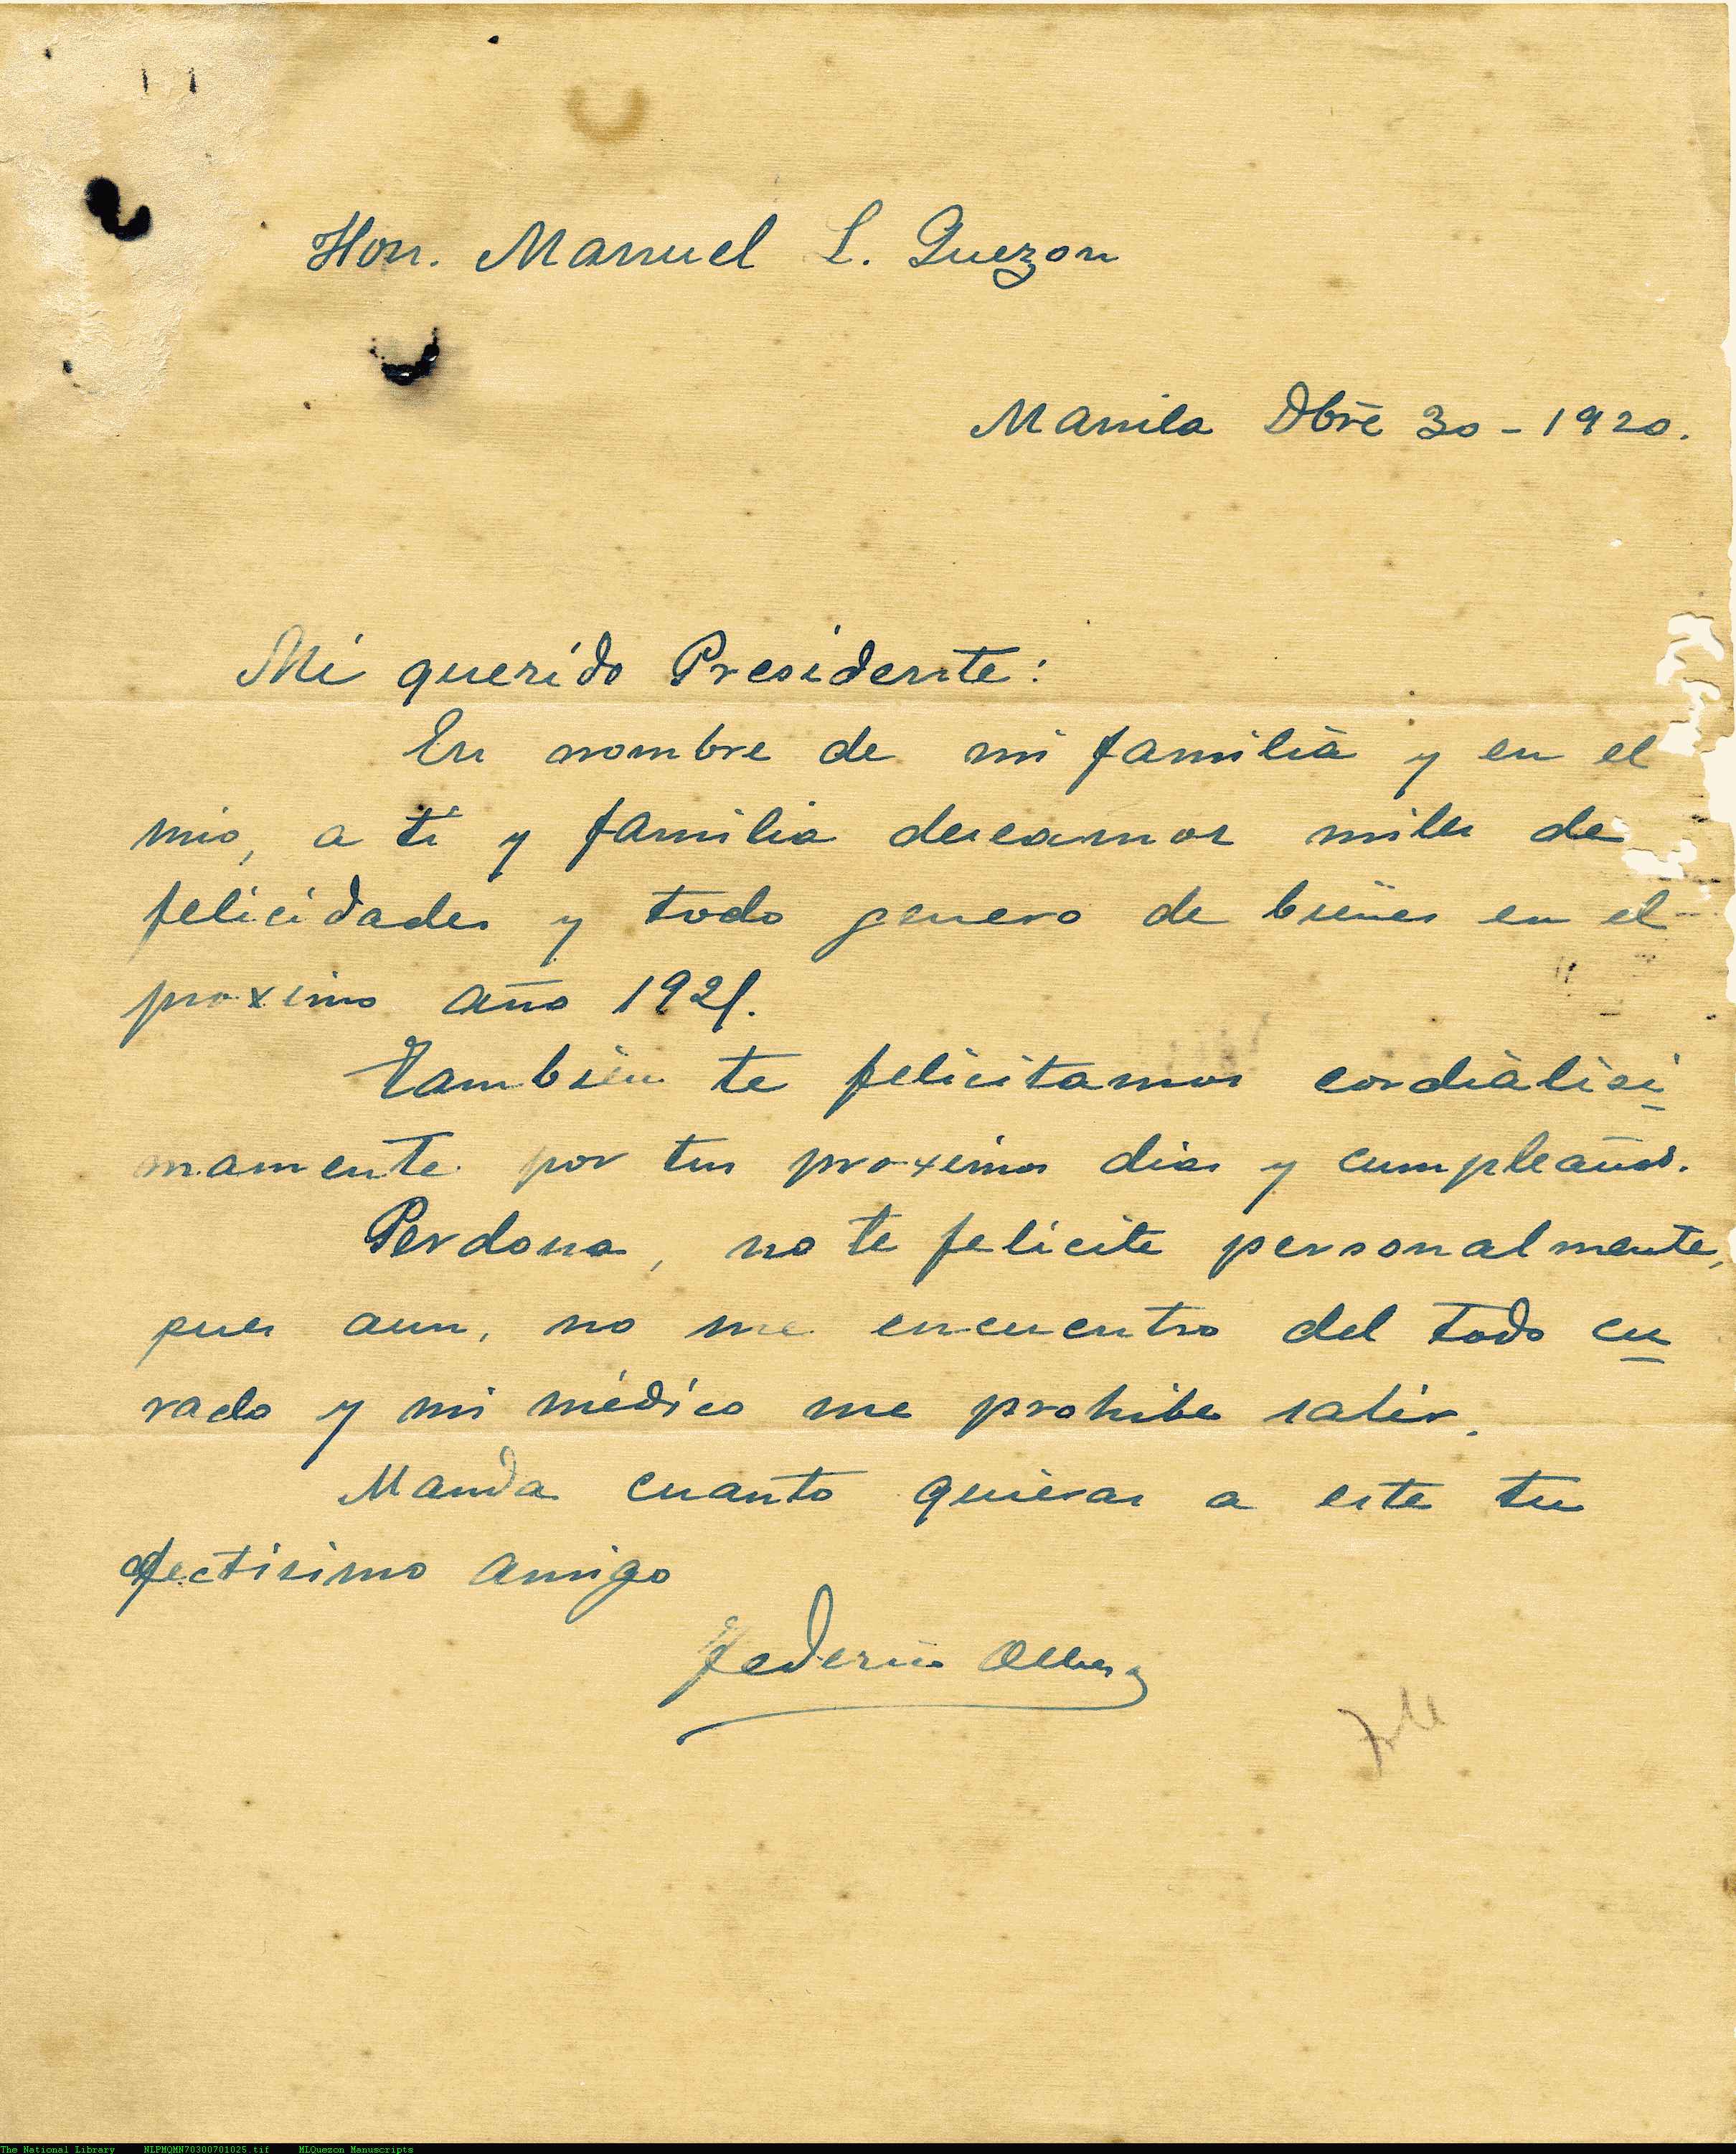 Hon. Manuel L. Quezon
Manila Dbre 30 - 1920.
Mi querido Presidente:
En nombre de mi familia y en el
mio, a ti y familia deseamos miles de
felicidades y todo genero de bienes en el
proximo año 1921.
Tambien te felicitamos cordialisi
mamente por tus proximos dias y cumpleaños.
Perdona, no te felicite personalmente,
pues aun, no me encuentro del todo cu
rado y mi médico me prohibe salir.
Manda cuanto quieras a este tu
afectisimo amigo
Federico
The National Library NLPMQMN70300701025.tif MLQuezon Manuscripts